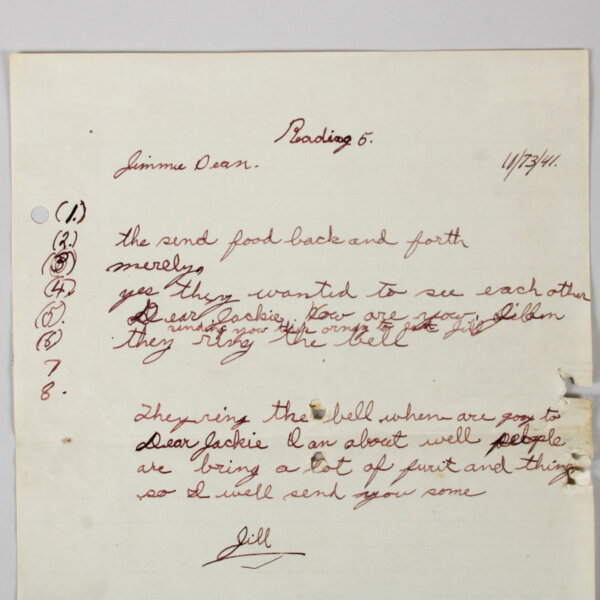 Reading 5.
Jimmie Dean. 11/73/41.
(1.)
(2.) the send food back and forth
(3) merely,
(4.) yes they wanted to see each other
(5). Dear Jackie. How are you.
sending you to Jill
(6) they ring the bell
7
8.
They ring the bell when are goo to
Dear Jackie I an about well people
are bring a lot of furit and thing
so I well send you some
Jill